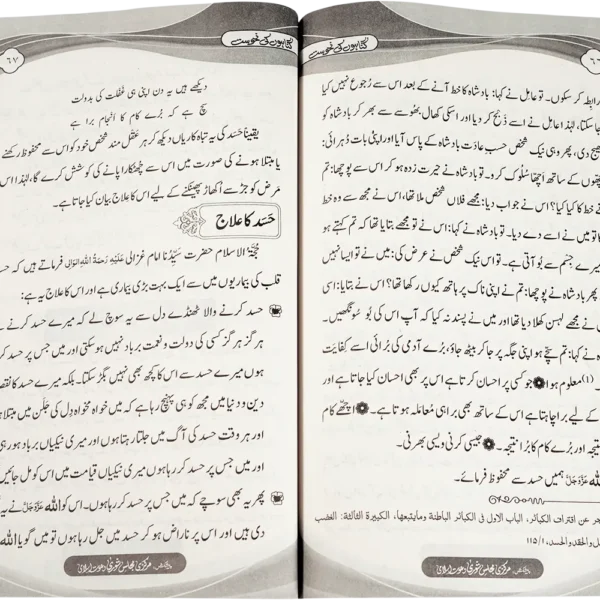 گناہوں کی نحوست
رابطہ کر سکوں۔ تو عامِل نے کہا: بادشاہ کا خط آنے کے بعد اس سے رُجوع نہیں کیا
جاسکتا، لہٰذا عامل نے اسے ذَبح کر دیا اور اسکی کھال، بھوسے سے بھر کر بادشاہ کو
بھیج دی، پھر وہی نیک شخص حسبِ عادَت بادشاہ کے پاس آیا اور اپنی بات دُہرائی:
چھوں کے ساتھ اچھا سُلوک کرو۔ تو بادشاہ نے حیرت زدہ ہو کر اس سے پوچھا: تم
خط کا کیا کیا؟ اس نے جواب دیا: مجھے فلاں شخص ملا تھا، اس نے مجھ سے وہ خط
تو میں نے اسے دے دیا۔ تو بادشاہ نے کہا: اس نے تو مجھے بتایا تھا کہ تم کہتے ہو
میرے جِسم سے بو آتی ہے۔ تو اس نیک شخص نے عرض کی: میں نے تو ایسا نہیں
پھر بادشاہ نے پوچھا: تم نے اپنی ناک پر ہاتھ کیوں رکھا تھا؟ اس نے بتایا: اسی
نے مجھے لہسن کھلا دیا تھا اور میں نے پسند نہ کیا کہ آپ اس کی بُو سُونگھیں۔
نے کہا: تم سچے ہو اپنی جگہ پر جا کر بیٹھ جاؤ، بُرے آدمی کی بُرائی اسے کِفایَت
(۱) معلوم ہوا جو کسی پر احسان کرتا ہے اس پر بھی احسان کیا جاتا ہے اور
کے لیے برا چاہتا ہے اس کے ساتھ بھی برا ہی مُعامَلہ ہوتا ہے۔ اچھے کام
نتیجہ اور بُرے کام کا بُرا نتیجہ۔ جیسی کرنی ویسی بھرنی۔
اللہ عَزَّوَجَلَّ ہمیں حسد سے محفوظ فرمائے۔
جر عن اقتراف الکبائر، الباب الاول فی الکبائر الباطنة ومایتبعھا، الکبیرة الثالثة: الغضب
ل والحقد والحسد، ۱/۱۱۵
مرکزی مجلسِ شوریٰ دعوتِ اسلامی
گناہوں کی نحوست
٦٧
دیکھے ہیں یہ دن اپنی ہی غفلت کی بدولت
سچ ہے کہ بُرے کام کا انجام برا ہے
یقیناً حَسَد کی یہ تباہ کاریاں دیکھ کر ہر عقل مند شخص خود کو اس سے محفوظ رکھنے
یا مبتلا ہونے کی صورت میں اس سے چھٹکارا پانے کی کوشش کرے گا، لہٰذا اس
مَرض کو جڑ سے اُکھاڑ پھینکنے کے لیے اس کا علاج بیان کیا جاتا ہے۔
حَسَد کا علاج
حُجَّۃُ الاسلام حضرت سیِّدُنا امام غزالی عَلَیْہِ رَحمَۃُ اللہِ الْوَالِی فرماتے ہیں کہ حسد
قلب کی بیماریوں میں سے ایک بہت بڑی بیماری ہے اور اس کا علاج یہ ہے:
حسد کرنے والا ٹھنڈے دل سے یہ سوچ لے کہ میرے حسد کرنے
ہرگز ہرگز کسی کی دولت و نعمت برباد نہیں ہو سکتی اور میں جس پر حسد کر
ہوں میرے حسد سے اس کا کچھ بھی نہیں بگڑ سکتا۔ بلکہ میرے حسد کا نقصا
دین و دنیا میں مجھ کو ہی پہنچ رہا ہے کہ میں خواہ مخواہ دِل کی جَلَن میں مبتلا ہو
اور ہر وقت حسد کی آگ میں جلتا رہتا ہوں اور میری نیکیاں برباد ہو رہی
اور میں جس پر حسد کر رہا ہوں میری نیکیاں قیامت میں اس کو مل جائیں
پھر یہ بھی سوچے کہ میں جس پر حسد کر رہا ہوں۔ اس کو اللہ عَزَّوَجَلَّ نے یہ
دی ہیں اور اس پر ناراض ہو کر حسد میں جل رہا ہوں تو میں گویا اللہ
مرکزی مجلسِ شوریٰ دعوتِ اسلامی